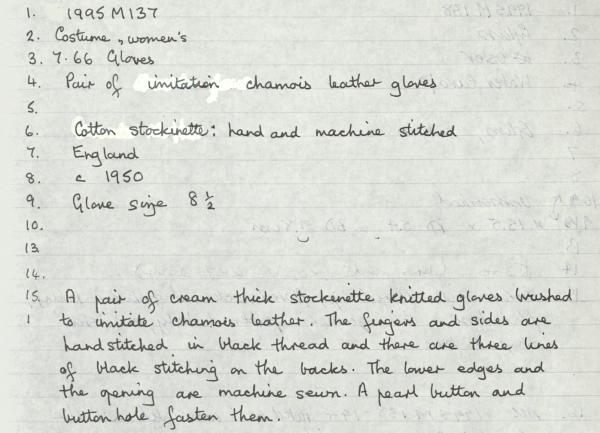 1. 1995 M 137
2. Costume, women's
3. 7.66 Gloves
4. Pair of imitation chamois leather gloves
5.
6. Cotton stockinette: hand and machine stitched
7. England
8. c 1950
9. Glove size 8 ½
10.
13
14.
15. A pair of cream thick stockenette knitted gloves brushed
1 to imitate chamois leather. The fingers and sides are
handstitched in black thread and there are three lines
of black stitching on the backs. The lower edges and
the opening are machine sewn. A pearl button and
button hole fasten them.